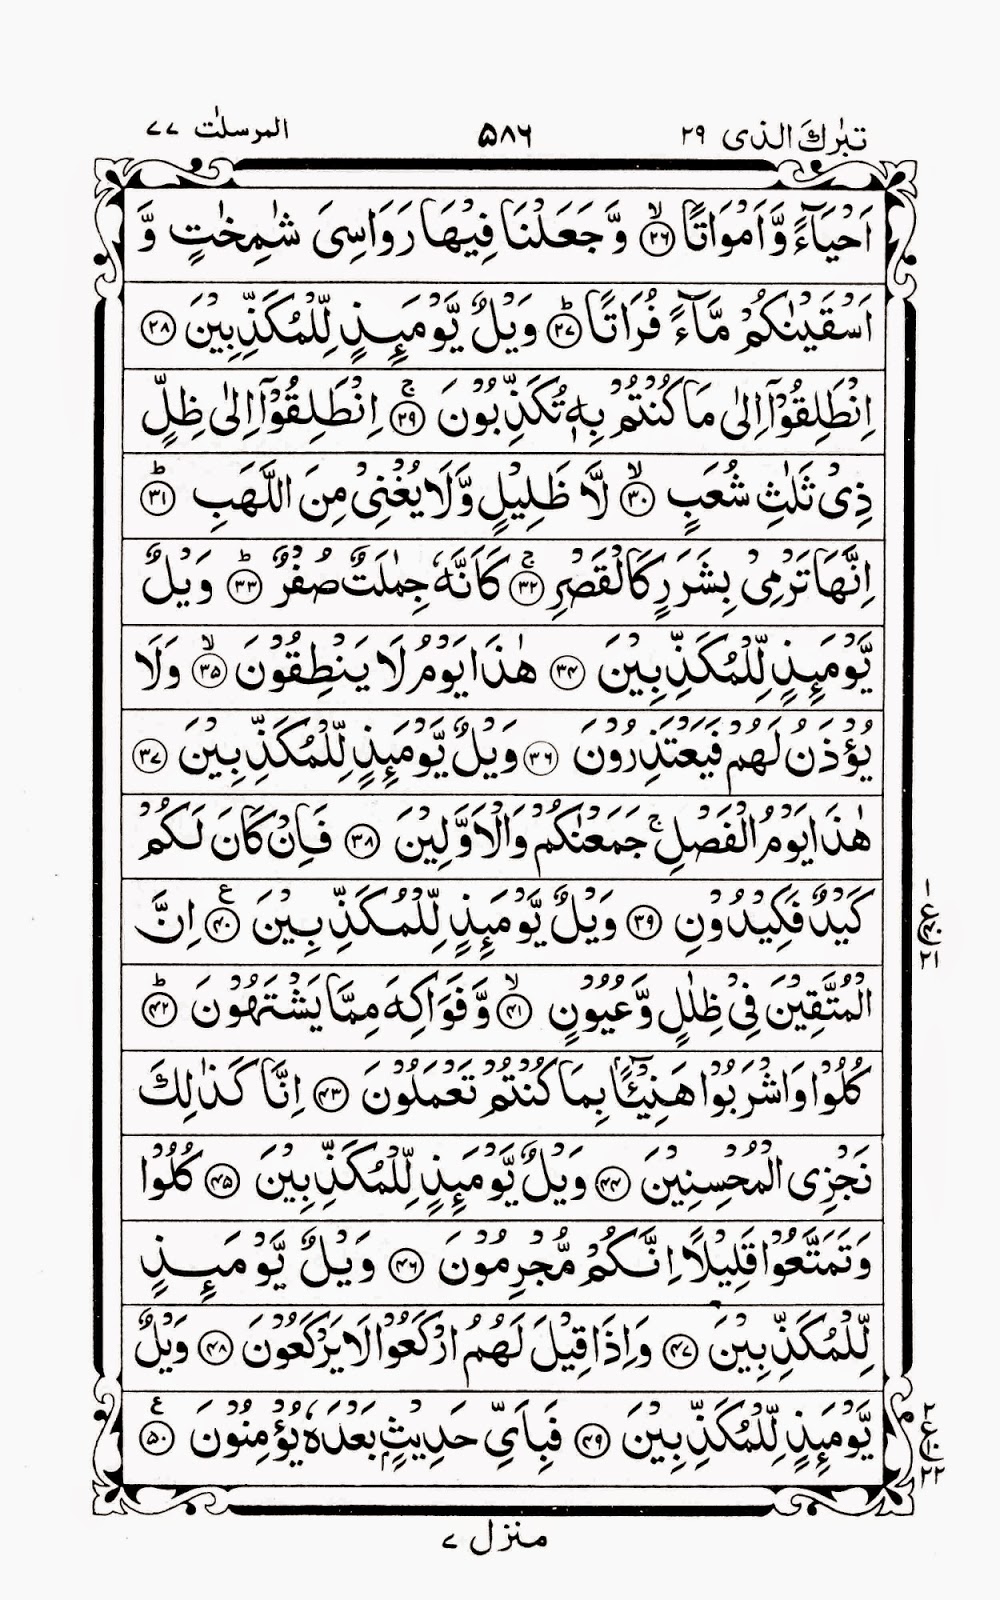 تبٰرك الذی ۲۹ ۵۸۶ المرسلٰت ۷۷
اَحْيَآءً وَّاَمْوَاتًا ۙ﴿۲۶﴾ وَّجَعَلْنَا فِيْهَا رَوَاسِىَ شٰمِخٰتٍ وَّ
اَسْقَيْنٰكُمْ مَّآءً فُرَاتًا ؕ﴿۲۷﴾ وَيْلٌ يَّوْمَئِذٍ لِّلْمُكَذِّبِيْنَ ﴿۲۸﴾
اِنْطَلِقُوْۤا اِلٰى مَا كُنْتُمْ بِهٖ تُكَذِّبُوْنَ ۚ﴿۲۹﴾ اِنْطَلِقُوْۤا اِلٰى ظِلٍّ
ذِىْ ثَلٰثِ شُعَبٍ ۙ﴿۳۰﴾ لَّا ظَلِيْلٍ وَّلَا يُغْنِىْ مِنَ اللَّهَبِ ؕ﴿۳۱﴾
اِنَّهَا تَرْمِىْ بِشَرَرٍ كَالْقَصْرِ ۚ﴿۳۲﴾ كَاَنَّهٗ جِمٰلَتٌ صُفْرٌ ؕ﴿۳۳﴾ وَيْلٌ
يَّوْمَئِذٍ لِّلْمُكَذِّبِيْنَ ﴿۳۴﴾ هٰذَا يَوْمُ لَا يَنْطِقُوْنَ ۙ﴿۳۵﴾ وَلَا
يُؤْذَنُ لَهُمْ فَيَعْتَذِرُوْنَ ﴿۳۶﴾ وَيْلٌ يَّوْمَئِذٍ لِّلْمُكَذِّبِيْنَ ﴿۳۷﴾
هٰذَا يَوْمُ الْفَصْلِ ۚ جَمَعْنٰكُمْ وَالْاَوَّلِيْنَ ﴿۳۸﴾ فَاِنْ كَانَ لَكُمْ
كَيْدٌ فَكِيْدُوْنِ ﴿۳۹﴾ وَيْلٌ يَّوْمَئِذٍ لِّلْمُكَذِّبِيْنَ ﴿۴۰﴾ع اِنَّ
الْمُتَّقِيْنَ فِىْ ظِلٰلٍ وَّعُيُوْنٍ ۙ﴿۴۱﴾ وَّفَوَاكِهَ مِمَّا يَشْتَهُوْنَ ؕ﴿۴۲﴾
كُلُوْا وَاشْرَبُوْا هَنِيْٓـئًا ۢ بِمَا كُنْتُمْ تَعْمَلُوْنَ ﴿۴۳﴾ اِنَّا كَذٰلِكَ
نَجْزِى الْمُحْسِنِيْنَ ﴿۴۴﴾ وَيْلٌ يَّوْمَئِذٍ لِّلْمُكَذِّبِيْنَ ﴿۴۵﴾ كُلُوْا
وَتَمَتَّعُوْا قَلِيْلًا اِنَّكُمْ مُّجْرِمُوْنَ ﴿۴۶﴾ وَيْلٌ يَّوْمَئِذٍ
لِّلْمُكَذِّبِيْنَ ﴿۴۷﴾ وَاِذَا قِيْلَ لَهُمُ ارْكَعُوْا لَا يَرْكَعُوْنَ ﴿۴۸﴾ وَيْلٌ
يَّوْمَئِذٍ لِّلْمُكَذِّبِيْنَ ﴿۴۹﴾ فَبِاَىِّ حَدِيْثٍۭ بَعْدَهٗ يُؤْمِنُوْنَ ﴿۵۰﴾ع
۱
ع ۴۰
۲۱
۲
ع ۱۰
۲۲
منزل ۷